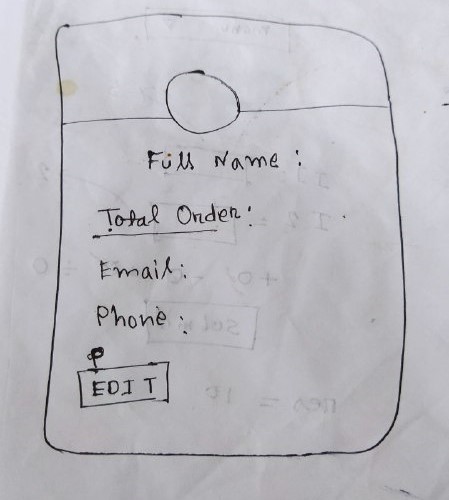 Full Name :
Total Order :
Email :
Phone :
P
EDIT